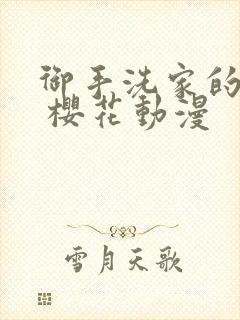 御手洗家的
櫻花動漫
雪月天歌